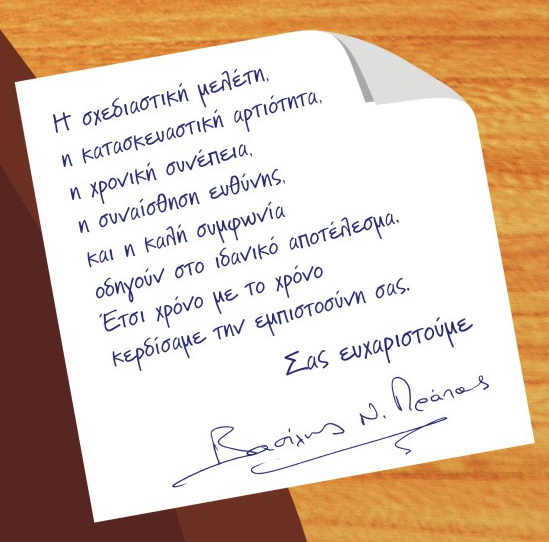 Η σχεδιαστική μελέτη,
η κατασκευαστική αρτιότητα,
η χρονική συνέπεια,
η συναίσθηση ευθύνης,
και η καλή συμφωνία
οδηγούν στο ιδανικό αποτέλεσμα.
Έτσι χρόνο με το χρόνο
κερδίσαμε την εμπιστοσύνη σας.
Σας ευχαριστούμε
Βασίλης Ν.